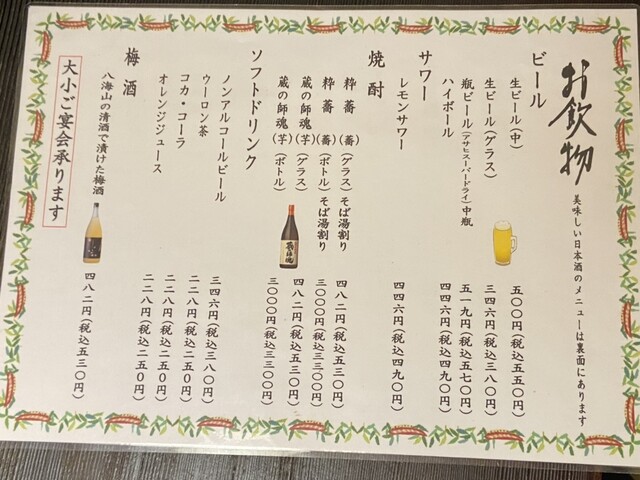 お飲物
美味しい日本酒のメニューは裏面にあります
ビール
生ビール(中) 五〇〇円(税込五五〇円)
生ビール(グラス) 三四六円(税込三八〇円)
瓶ビール(アサヒスーパードライ)中瓶 五一九円(税込五七〇円)
ハイボール 四四六円(税込四九〇円)
サワー
レモンサワー 四四六円(税込四九〇円)
焼酎
粋蕎(蕎)(グラス)そば湯割り 四八二円(税込五三〇円)
粋蕎(蕎)(ボトル)そば湯割り 三〇〇〇円(税込三三〇〇円)
蔵の師魂(芋)(グラス) 四八二円(税込五三〇円)
蔵の師魂(芋)(ボトル) 三〇〇〇円(税込三三〇〇円)
ソフトドリンク
ノンアルコールビール 三四六円(税込三八〇円)
ウーロン茶 二二八円(税込二五〇円)
コカ・コーラ 二二八円(税込二五〇円)
オレンジジュース 二二八円(税込二五〇円)
梅酒
八海山の清酒で漬けた梅酒 四八二円(税込五三〇円)
大小ご宴会承ります